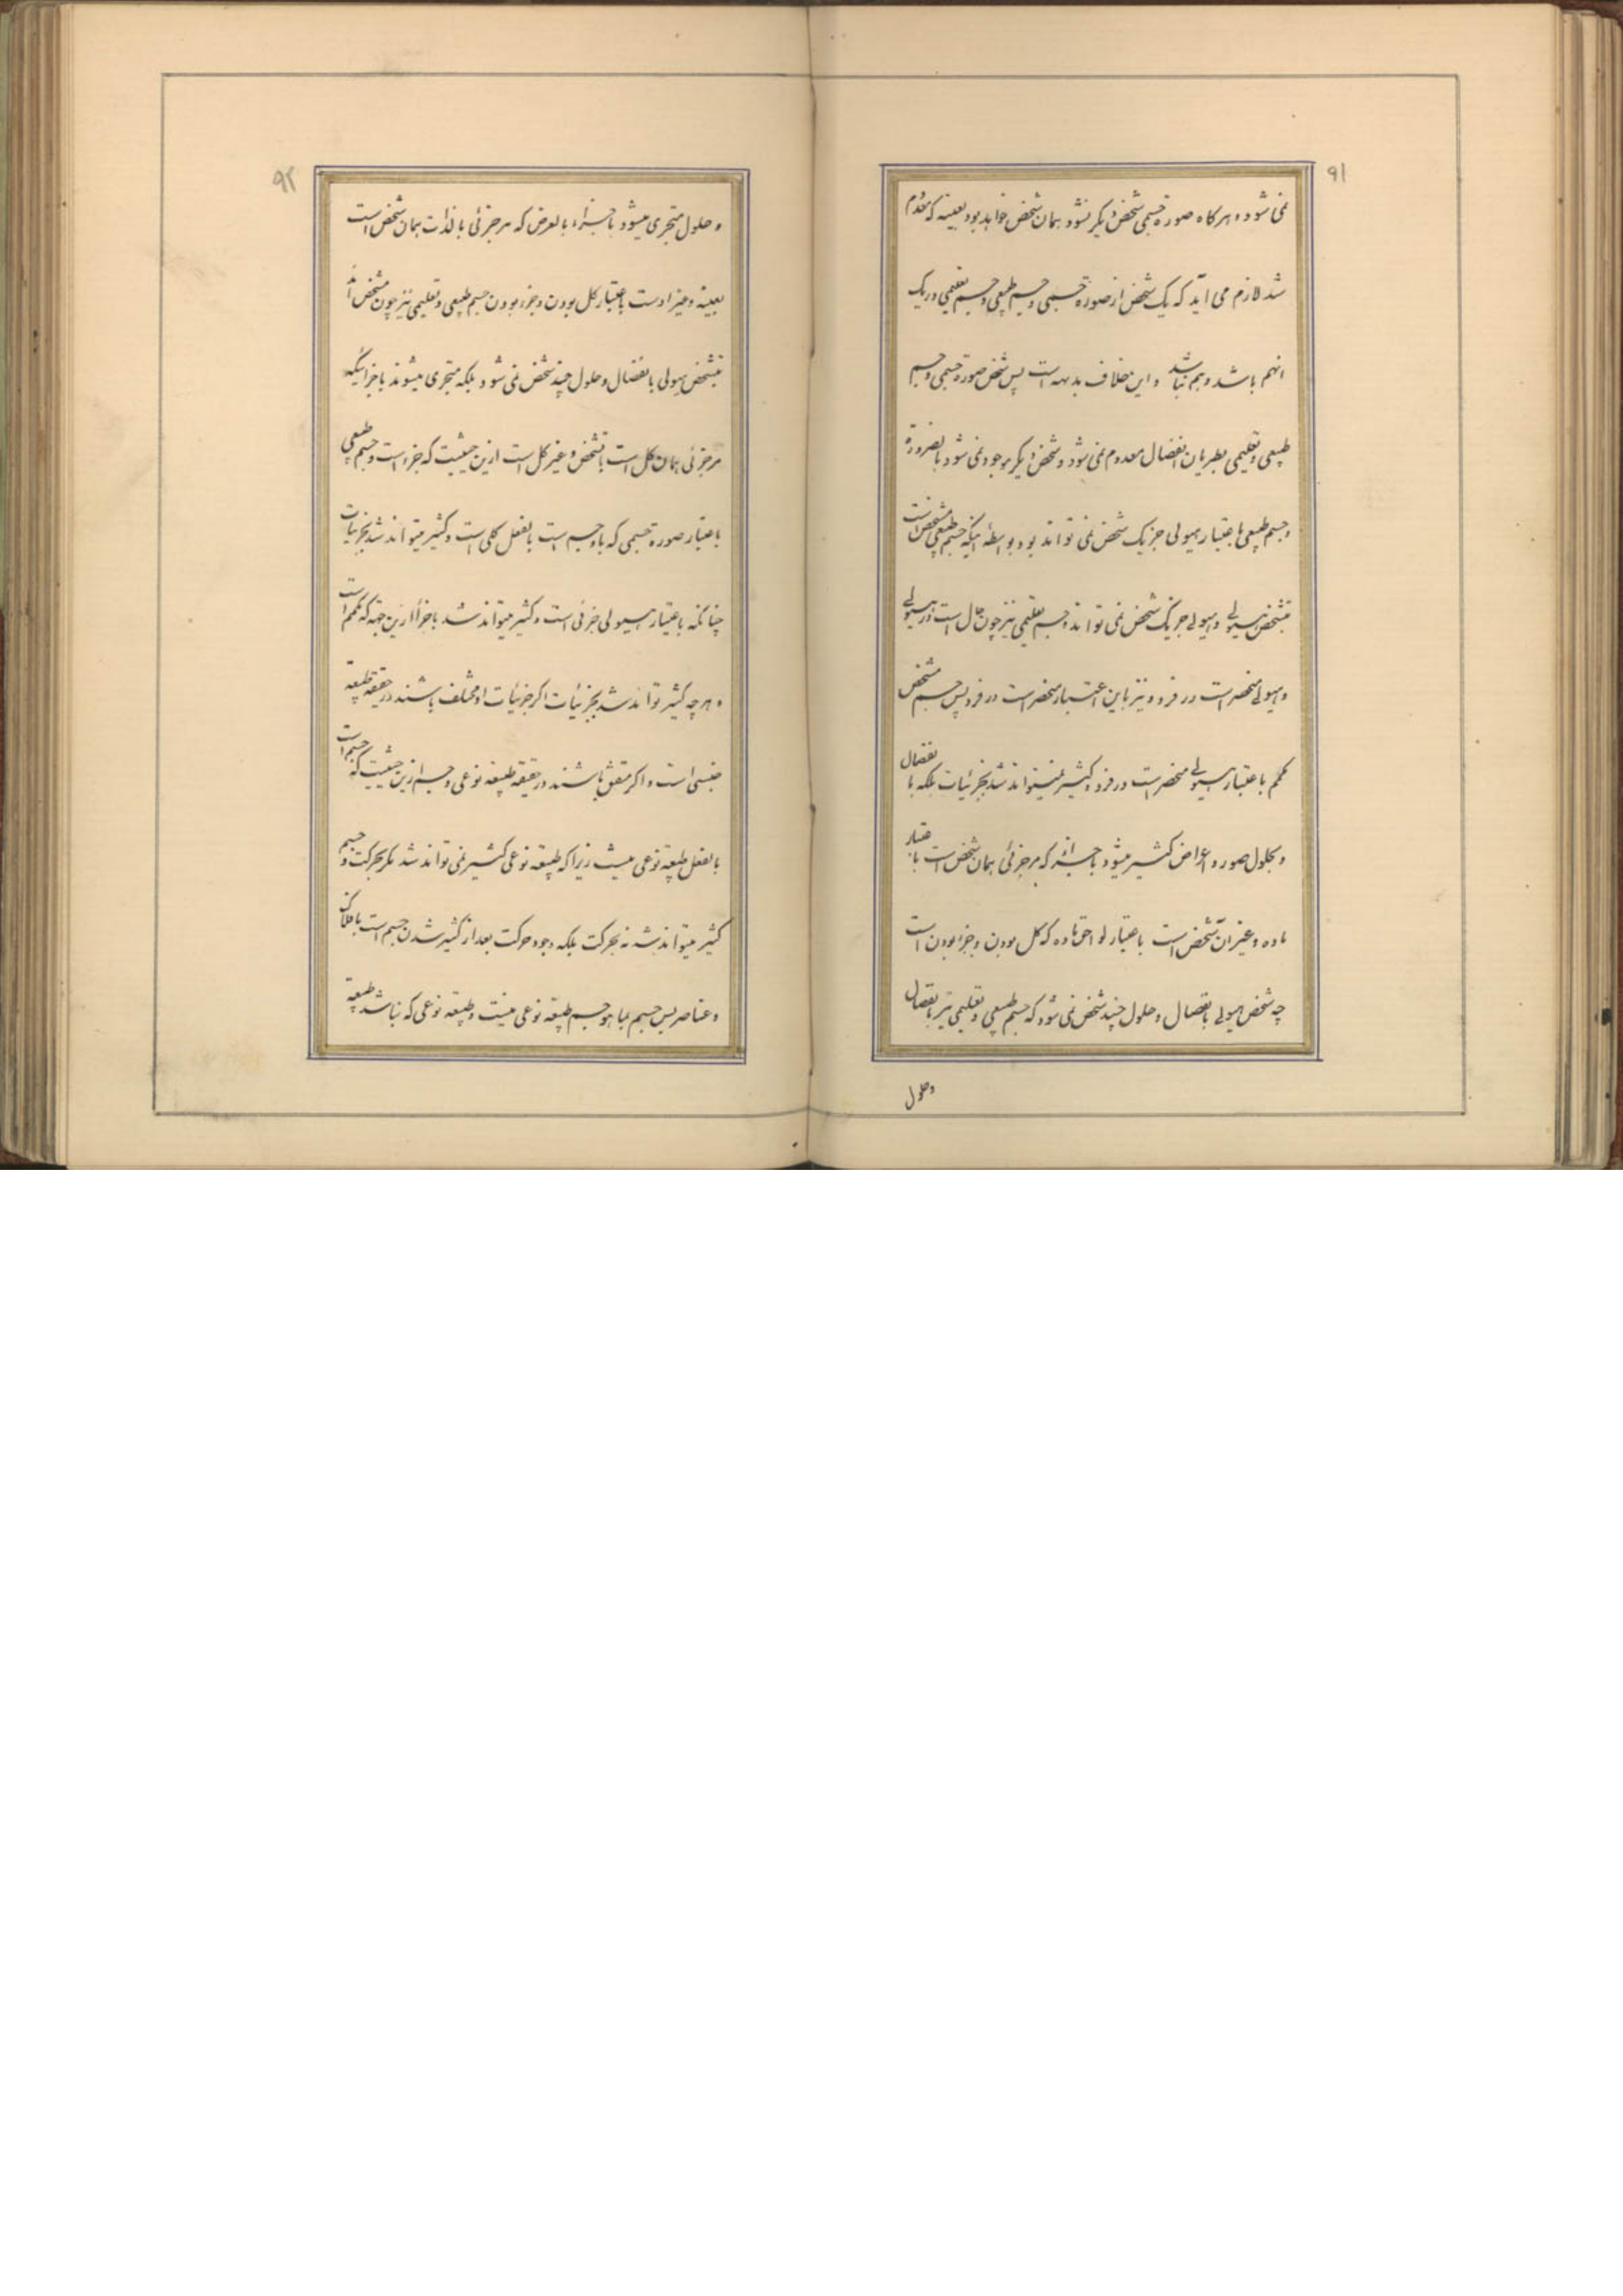 ۹۱
نمی شود و هرکاه صورة جسمی شخص دیکر نشود همان شخص خواهد بود بعینه که معدوم
شد لازم می آید که یک شخص از صورة جسمی و جسم طبیعی و جسم تعلیمی در یک
انهم باشد و هم نباشد و این خلاف بدیهه است پس شخص صورة جسمی و جسم
طبیعی و تعلیمی بطریان انفصال معدوم نمی شود و شخص دیکر موجود نمی شود بالضرورة
و جسم طبیعی باعتبار هیولی جز یک شخص نمی تواند بود بواسطه اینکه جسم طبیعی مشخص است
بتشخص هیولی و هیولی جز یک شخص نمی تواند و جسم تعلیمی نیز چون حال است در هیولی
و هیولی منحصر است در فرد و نیز باین اعتبار منحصر است در فرد پس جسم مشخص
کمم باعتبار هیولی منحصر است در فرد و کثیر نمیتواند شد بجزئیات بلکه با نفصال
و بحلول صور و اعراض کثیر میشود باجزائیکه هر جزئی همان شخص است باعتبار
ماده و غیر ان شخص است باعتبار لواحق ماده که کل بودن و جزء بودن است
چه شخص هیولی بانفصال و حلول چند شخص نمی شود که جسم طبیعی و تعلیمی نیز بانفصال
وحلول
۹۲
و حلول متجزی میشود باجزاء بالعرض که هر جزئی بالذات همان شخص است
بعینه و غیر اوست باعتبار کل بودن و جزء بودن جسم طبیعی و تعلیمی نیز چون مشخص اند
بتشخص هیولی بانفصال و حلول چند شخص نمی شود بلکه متجزی میشوند باجزائیکه
هر جزئی همان کل است بتشخص و غیر کل است ازین حیثیت که جزء است و جسم طبیعی
باعتبار صورة جسمی که باو جسم است بالفعل کلی است و کثیر میتواند شد بجزئیات
چنانکه باعتبار هیولی جزئی است و کثیر میتواند شد باجزاء ازین جهة که کمم است
و هرچه کثیر تواند شد بجزئیات اکر جزئیات او مختلف باشند در حقیقة طبیعة
جنسی است و اکر متفق باشند در حقیقة طبیعة نوعی و جسم ازین حیثیت که جسم است
بالفعل طبیعة نوعی نیست زیرا که طبیعة نوعی کثیر نمی تواند شد مکر بحرکت و جسم
کثیر میتواند شد نه بحرکت بلکه وجود حرکت بعد از کثیر شدن جسم است بافلاک
و عناصر پس جسم بما هو جسم طبیعة نوعی نیست و طبیعة نوعی که نباشد طبیعة